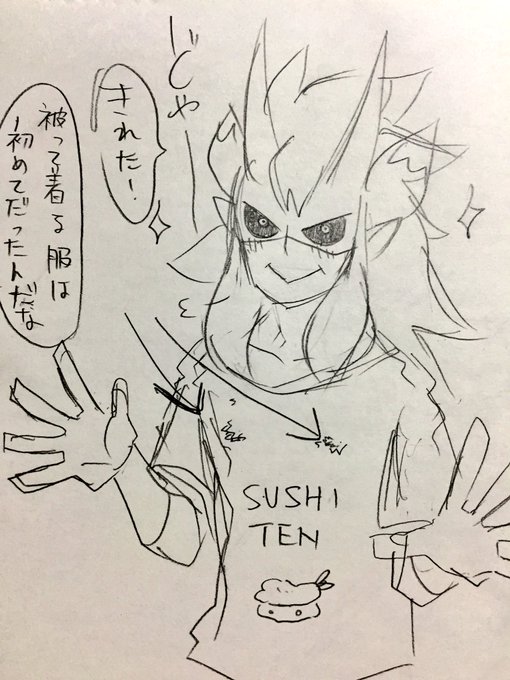 じゃー
きれた!
被って着る服は
初めてだったんだな
SUSHI
TEN